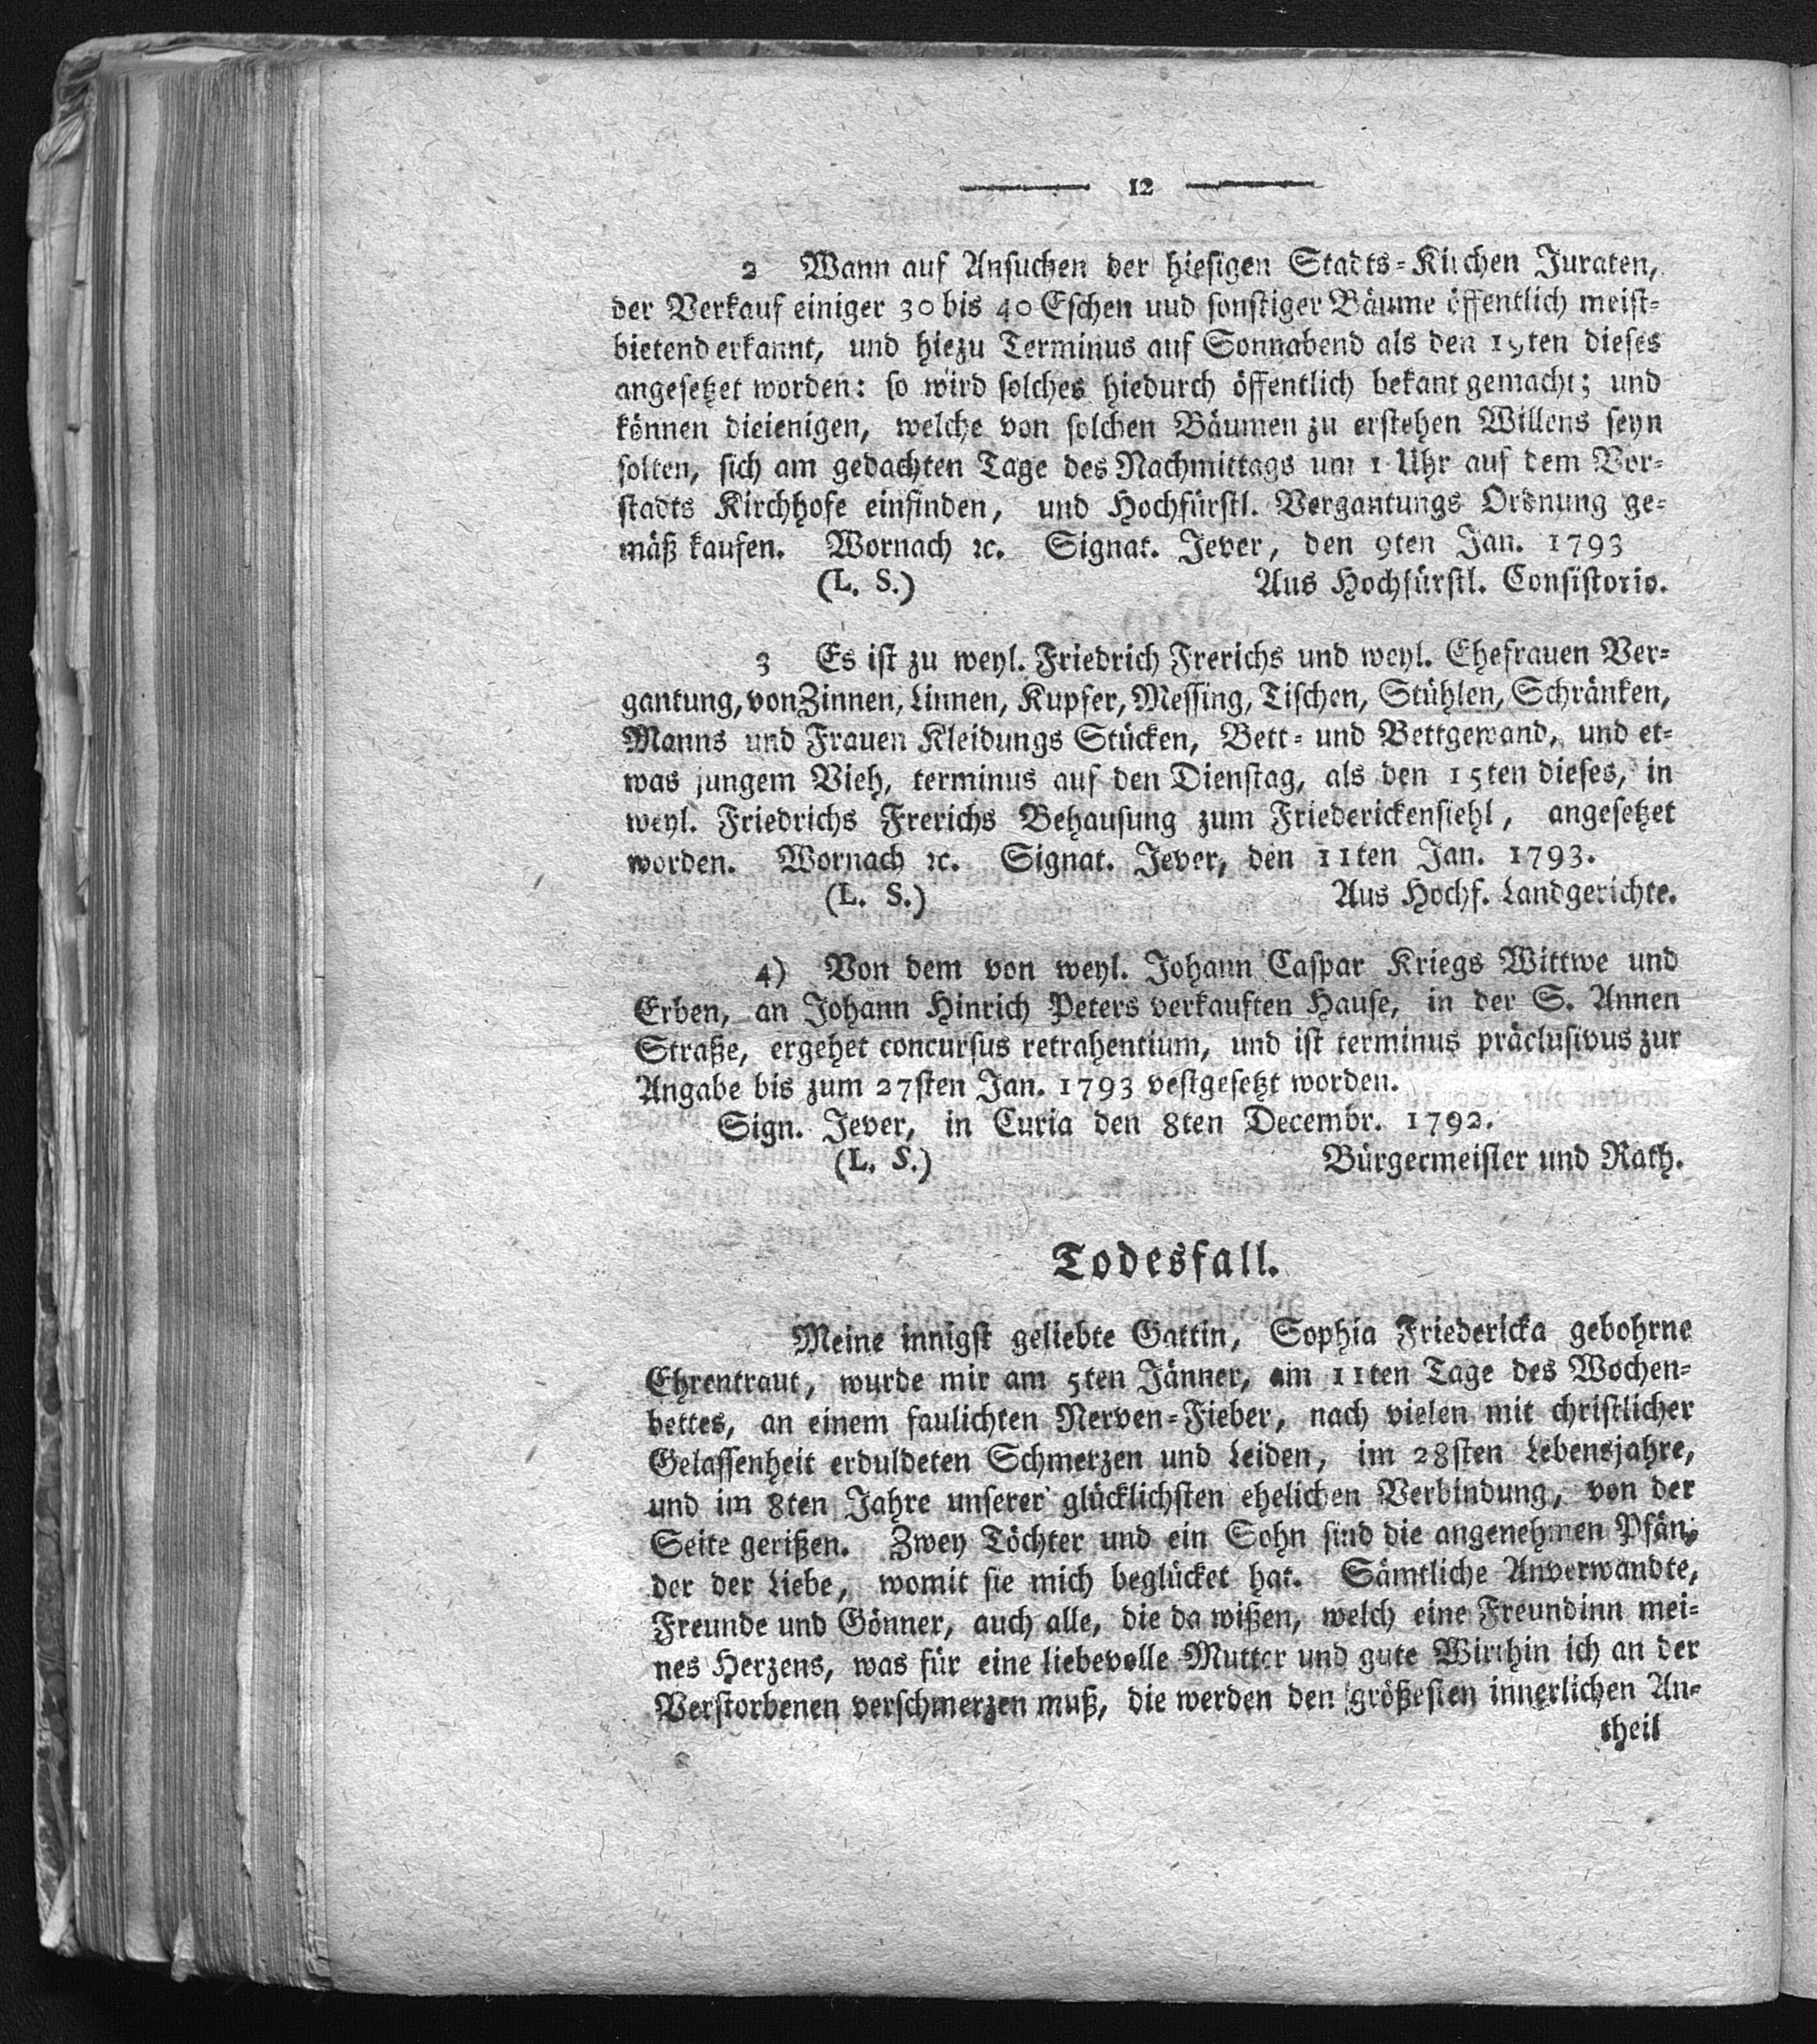 12
2 Wann auf Ansuchen der hiesigen Stadts-Kirchen Juraten,
der Verkauf einiger 30 bis 40 Eschen uud sonstiger Bäume öffentlich meist-
bietend erkannt, und hiezu Terminus auf Sonnabend als den 19ten dieses
angesetzet worden: so wird solches hiedurch öffentlich bekant gemacht; und
können dieienigen, welche von solchen Bäumen zu erstehen Willens seyn
solten, sich am gedachten Tage des Nachmittags um 1 Uhr auf dem Vor-
stadts Kirchhofe einfinden, und Hochfürstl. Vergantungs Ordnung ge-
mäß kaufen. Wornach ꝛc. Signat. Jever, den 9ten Jan. 1793
(L. S.) Aus Hochfürstl. Consistorio.
3 Es ist zu weyl. Friedrich Frerichs und weyl. Ehefrauen Ver-
gantung, von Zinnen, Linnen, Kupfer, Messing, Tischen, Stühlen, Schränken,
Manns und Frauen Kleidungs Stücken, Bett- und Bettgewand, und et-
was jungem Vieh, terminus auf den Dienstag, als den 15ten dieses, in
weyl. Friedrichs Frerichs Behausung zum Friederickensiehl, angesetzet
worden. Wornach ꝛc. Signat. Jever, den 11ten Jan. 1793.
(L. S.) Aus Hochf. Landgerichte.
4) Von dem von weyl. Johann Caspar Kriegs Wittwe und
Erben, an Johann Hinrich Peters verkauften Hause, in der S. Annen
Straße, ergehet concursus retrahentium, und ist terminus präclusivus zur
Angabe bis zum 27sten Jan. 1793 vestgesetzt worden.
Sign. Jever, in Curia den 8ten Decembr. 1792.
(L. S.) Bürgermeister und Rath.
Todesfall.
Meine innigst geliebte Gattin, Sophia Friedericka gebohrne
Ehrentraut, wurde mir am 5ten Jänner, am 11ten Tage des Wochen-
bettes, an einem faulichten Nerven-Fieber, nach vielen mit christlicher
Gelassenheit erduldeten Schmerzen und Leiden, im 28sten Lebensjahre,
und im 8ten Jahre unserer glücklichsten ehelichen Verbindung, von der
Seite gerißen. Zwey Töchter und ein Sohn sind die angenehmen Pfän-
der der Liebe, womit sie mich beglücket hat. Sämtliche Anverwandte,
Freunde und Gönner, auch alle, die da wißen, welch eine Freundinn mei-
nes Herzens, was für eine liebevolle Mutter und gute Wirthin ich an der
Verstorbenen verschmerzen muß, die werden den größesten innerlichen An-
theil